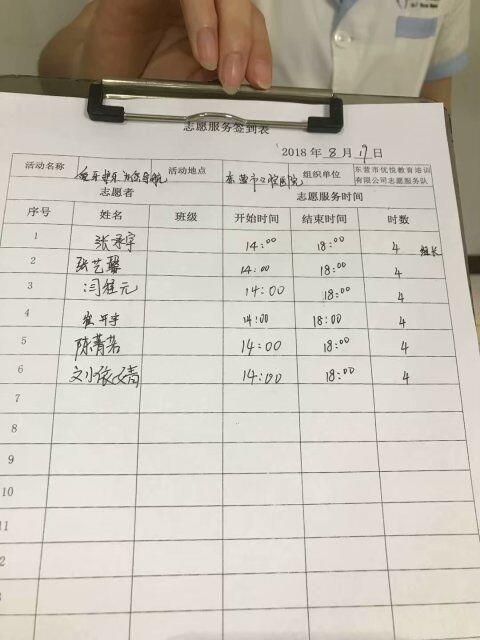 志愿服务签到表
2018 年 8 月 17 日
活动名称 活动地点 东营市口腔医院 组织单位 东营市优悦教育培训有限公司志愿服务队
志愿者 志愿服务时间
序号 姓名 班级 开始时间 结束时间 时数
1 张承宇 14:00 18:00 4 组长
2 张艺馨 14:00 18:00 4
3 闫桂元 14:00 18:00 4
4 崔开宇 14:00 18:00 4
5 陈菁若 14:00 18:00 4
6 14:00 18:00 4
7
8
9
10
11
2